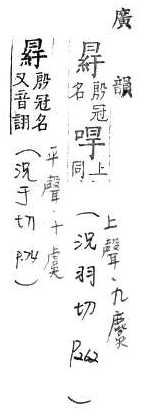 廣韻
冔殷冠名㖅上同
上聲.九麌
(況羽切 P262)
冔殷冠名又音詡
平聲.十虞
(況于切 P.74)